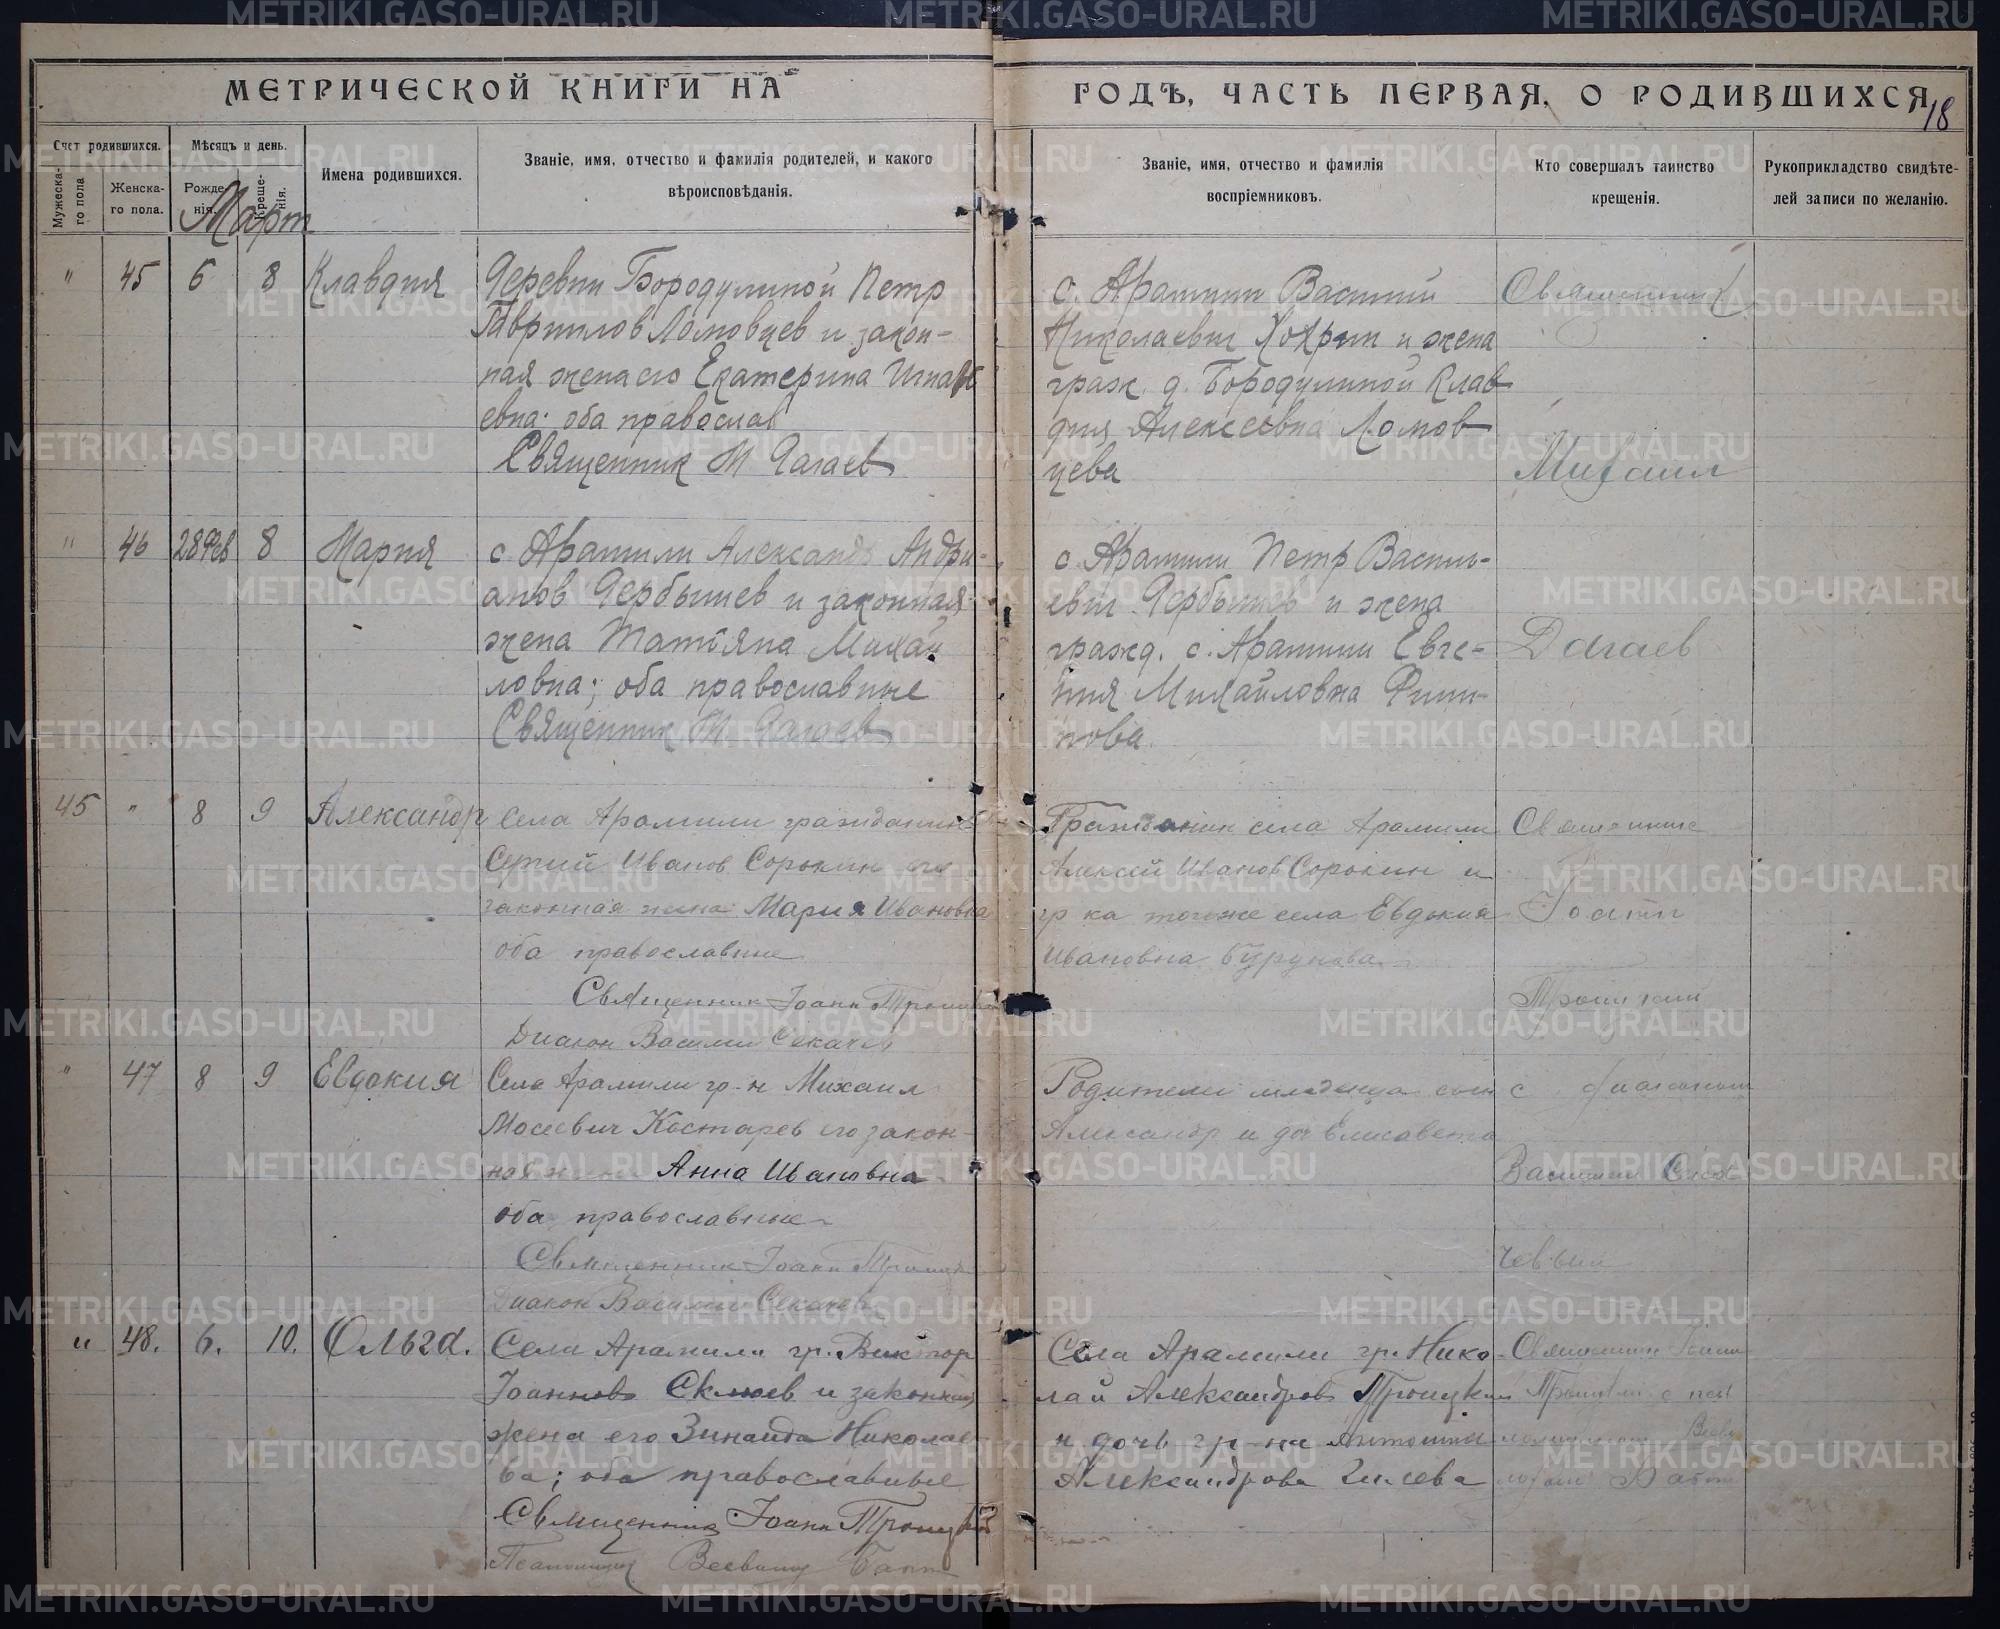 МЕТРИЧЕСКОЙ КНИГИ НА
ГОДЪ, ЧАСТЬ ПЕРВАЯ, О РОДИВШИХСЯ
18
Счет родившихся.
Мѣсяцъ и день.
Имена родившихся.
Званіе, имя, отчество и фамилія родителей, и какого
вѣроисповѣданія.
Мужеска-
го пола
Женска-
го пола.
Рожде-
нія.
Креще-
нія.
Званіе, имя, отчество и фамилія
воспріемниковъ.
Кто совершалъ таинство
крещенія.
Рукоприкладство свидѣте-
лей записи по желанію.
Март
" 45 6 8 Клавдия
Деревни Бородулиной Петр
Гаврилов Ломовцев и закон-
ная жена его Екатерина Игнать
евна; оба православ
Священник М Дагаев
с. Арамили Василий
Николаевич Хохрин и жена
граж. д. Бородулиной Клав
дия Алексеевна Ломов
цева
Священник
Михаил
" 46 28 Фев 8 Мария
с Арамили Александр Андри-
анов Дербышев и законная
жена Татіяна Михай
ловна; оба православные
Священник М Дагаев
с. Арамили Петр Василь-
евич Дербышев и жена
гражд. с. Арамили Евге-
ния Михайловна Филип-
пова
Дагаев
45 " 8 9 Александр
Села Арамили гражданин
Сергий Иванов Сорокин его
законная жена Мария Ивановна
оба православные
Священник Іоанн Троицкий
Диакон Василий Секачев
Гражданин села Арамили
Алексей Иванов Сорокин и
гр ка тогоже села Евдокия
Ивановна
Священник
Іоанн
Троицкий
" 47 8 9 Евдокия
Села Арамили гр-н Михаил
Мосеевич Костарев его закон-
ная жена Анна Ивановна
оба православные
Священник Іоанн Троицкий
Диакон Василий Секачев
Родители младенца сын
Александр и доч Елисавета
с диаконом
Василием Сека
чевым
" 48. 6. 10. Ольга.
Села Арамили гр. Виктор
Іоаннов Склюев и законная
жена его Зинаида Николаев
ва; оба православные
Священник Іоанн Троицкий
Псаломщик
Села Арамили гр. Нико-
лай Александров Троицкий
и дочь гр-на Антонина
Александрова
Священник Іоанн
Троицкий с псал
ломщиком
METRIKI.GASO-URAL.RU